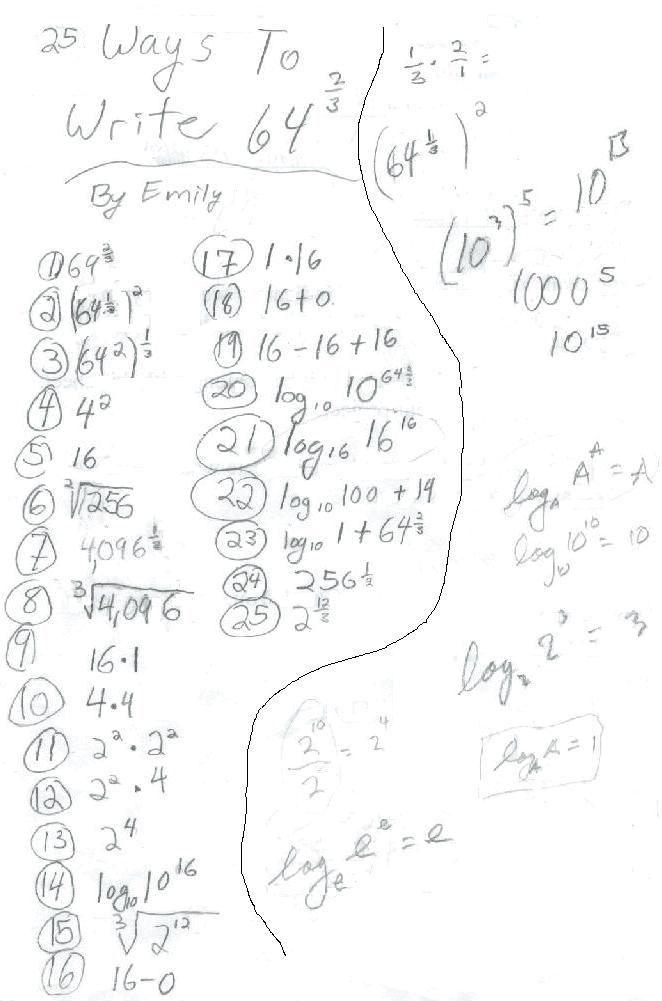 25 Ways To
Write 64^(2/3)
By Emily
① 64^(2/3)
② (64^(1/3))^2
③ (64^2)^(1/3)
④ 4^2
⑤ 16
⑥ ²√256
⑦ 4,096^(1/3)
⑧ ³√4,096
⑨ 16·1
⑩ 4·4
⑪ 2^2 · 2^2
⑫ 2^2 · 4
⑬ 2^4
⑭ log_10 10^16
⑮ ³√2^12
⑯ 16-0
⑰ 1·16
⑱ 16+0
⑲ 16-16+16
⑳ log_10 10^(64^(2/3))
㉑ log_16 16^16
㉒ log_10 100 + 14
㉓ log_10 1 + 64^(2/3)
㉔ 256^(1/2)
㉕ 2^(12/3)
1/3 · 2/1 =
(64^(1/3))^2
(10^3)^5 = 10^B
1000^5
10^15
log_A A^A = A
log_10 10^10 = 10
log_2 2^3 = 3
log_A A = 1
2^4
log_e e^e = e